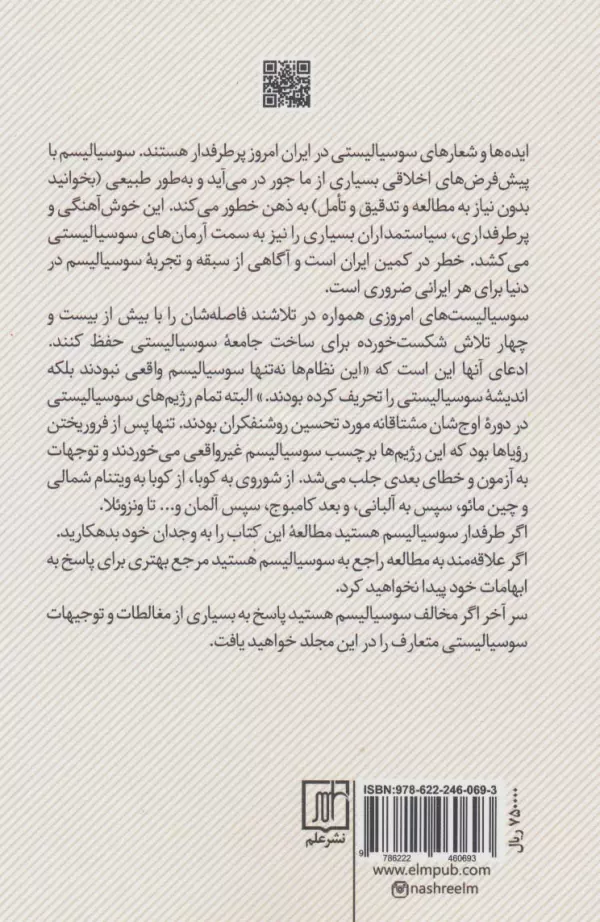 ایده‌ها و شعارهای سوسیالیستی در ایران امروز پرطرفدار هستند. سوسیالیسم با
پیش‌فرض‌های اخلاقی بسیاری از ما جور در می‌آید و به‌طور طبیعی (بخوانید
بدون نیاز به مطالعه و تدقیق و تأمل) به ذهن خطور می‌کند. این خوش‌آهنگی و
پرطرفداری، سیاستمداران بسیاری را نیز به سمت آرمان‌های سوسیالیستی
می‌کشد. خطر در کمین ایران است و آگاهی از سبقه و تجربهٔ سوسیالیسم در
دنیا برای هر ایرانی ضروری است.
سوسیالیست‌های امروزی همواره در تلاشند فاصله‌شان را با بیش از بیست و
چهار تلاش شکست‌خورده برای ساخت جامعهٔ سوسیالیستی حفظ کنند.
ادعای آنها این است که «این نظام‌ها نه‌تنها سوسیالیسم واقعی نبودند بلکه
اندیشهٔ سوسیالیستی را تحریف کرده بودند.» البته تمام رژیم‌های سوسیالیستی
در دورهٔ اوج‌شان مشتاقانه مورد تحسین روشنفکران بودند. تنها پس از فروریختن
رؤیاها بود که این رژیم‌ها برچسب سوسیالیسم غیرواقعی می‌خوردند و توجهات
به آزمون و خطای بعدی جلب می‌شد. از شوروی به کوبا، از کوبا به ویتنام شمالی
و چین مائو، سپس به آلبانی، و بعد کامبوج، سپس آلمان و... تا ونزوئلا.
اگر طرفدار سوسیالیسم هستید مطالعهٔ این کتاب را به وجدان خود بدهکارید.
اگر علاقه‌مند به مطالعه راجع به سوسیالیسم هستید مرجع بهتری برای پاسخ به
ابهامات خود پیدا نخواهید کرد.
سر آخر اگر مخالف سوسیالیسم هستید پاسخ به بسیاری از مغالطات و توجیهات
سوسیالیستی متعارف را در این مجلد خواهید یافت.
نشر علم
ISBN:978-622-246-069-3
9 786222 460693
۷۵۰۰۰۰ ریال
www.elmpub.com
nashreelm